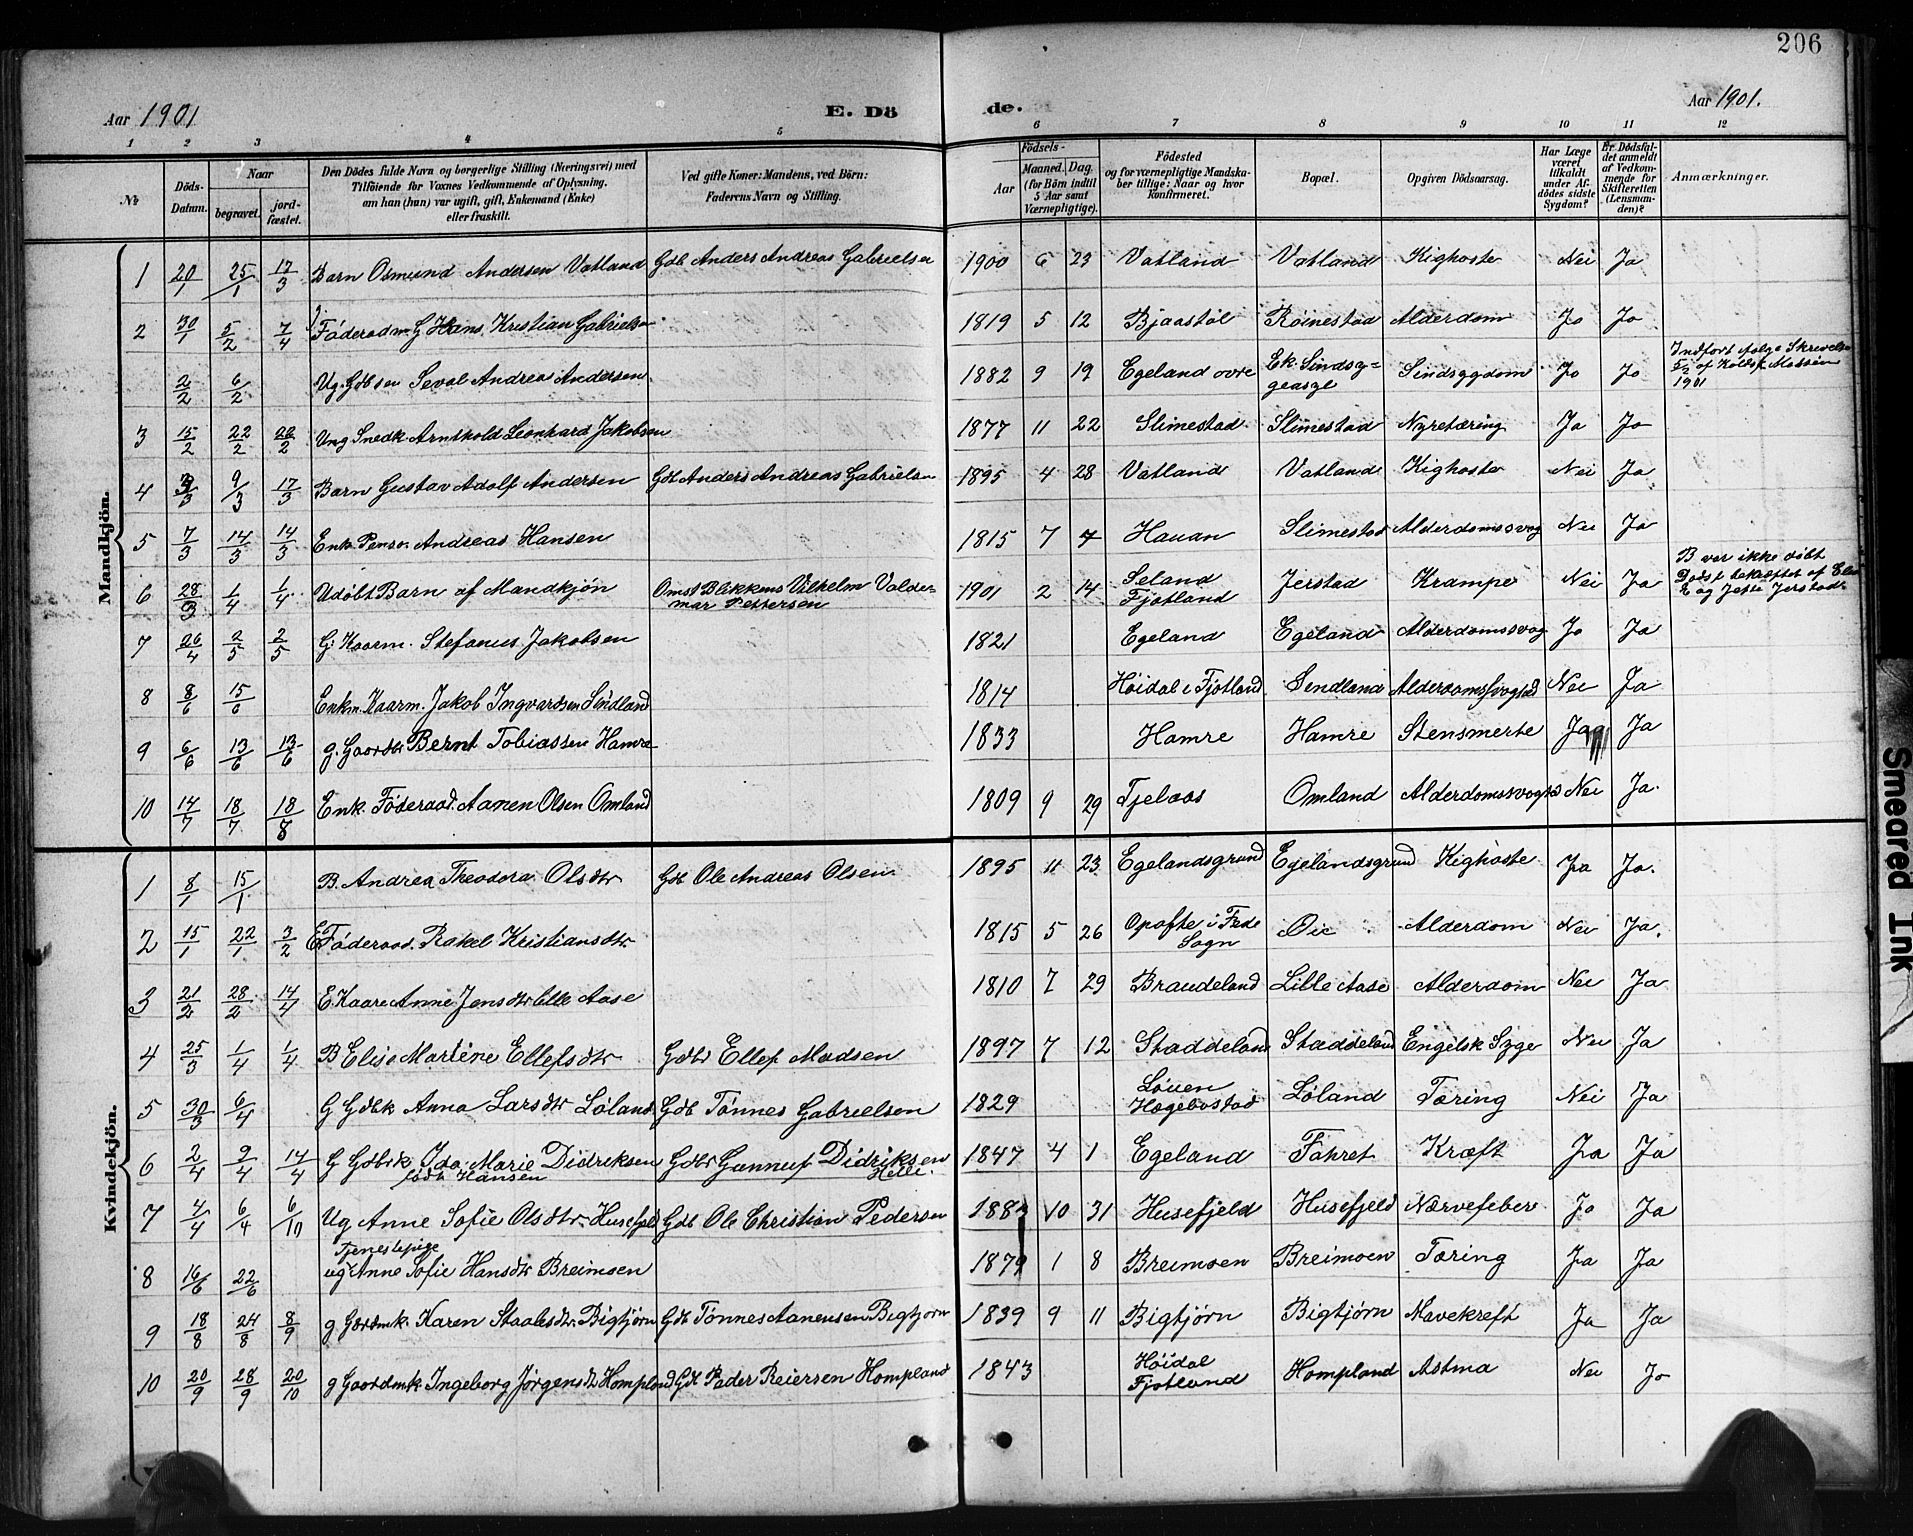 206
Aar 1901
E. Dö
de.
Aar 1901.
1 2 3 4 5 6 7 8 9 10 11 12
№
Döds-Datum.
Naar
begravet.
jord-fæstet.
Den Dödes fulde Navn og borgerlige Stilling (Næringsvei) med
Tilföiende for Voxnes Vedkommende af Oplysning,
om han (hun) var ugift, gift, Enkemand (Enke)
eller fraskilt.
Ved gifte Koner: Mandens, ved Börn:
Faderens Navn og Stilling.
Födsels-
Aar
Maaned. Dag.
(for Börn indtil
5 Aar samt
Værnepligtige).
Födested
og for værnepligtige Mandska-
ber tillige: Naar og hvor
konfirmeret.
Bopæl.
Opgiven Dödsaarsag.
Har Læge
været
tilkaldt
under Af-
dödes sidste
Sygdom?
Er Dödsfal-
det anmeldt
af Vedkom-
mende for
Skifteretten
(Lensman-
den)?
Anmærkninger.
Mandkjön.
1 20/1 25/1 17/3 Barn Osmund Andersen Vatland Gdb Anders Andreas Gabrielsen 1900 6 23 Vatland Vatland Kighoste Nei Ja
2 30/1 5/2 7/4 Föderaadm G Hans Kristian Gabrielsen 1819 5 12 Bjaastöl Röinestad Alderdom Ja Ja
2/2 6/2 Ug. Gdb sen Seval Andreas Andersen 1882 9 19 Egeland övre Ek. Sindsyge- Sindsygdom Ja Ja Indfört ifølge Skrivelse
1901
3 15/2 22/2 26/2 Ung Snedk Arnthold Leonhard Jakobsen 1877 11 22 Slimestad Slimestad Nyretæring Ja Ja
4 3/3 9/3 17/3 Barn Gustav Adolf Andersen Gdb Anders Andreas Gabrielsen 1895 4 28 Vatland Vatland Kighoste Nei Ja
5 7/3 14/3 14/3 Enk. Andreas Hansen 1815 7 4 Hauan Slimestad Alderdomssvag Nei Ja
6 28/3 1/4 1/4 Udöbt Barn af Mandkjön Omst Blikkens Vilhelm Valde-
mar Pettersen 1901 2 14 Seland
Fjotland Jerstad Krampe Nei Ja B var ikke döbt
7 26/4 2/5 2/5 G. Kaarm. Stefanus Jakobsen 1821 Egeland Egeland Alderdomssvag Ja Ja
8 8/6 15/6 Enkm. Kaarm. Jakob Ingvardsen Sindland 1814 Höidal i Fjotland Sendland Alderdomssvaghed Nei Ja
9 6/6 13/6 13/6 g. Gaardbr Bernt Tobiassen Hamre 1833 Hamre Hamre Stensmerte Ja Ja
10 14/7 18/7 18/8 Enk. Föderaad. Aanen Olsen Omland 1809 9 29 Tjelaas Omland Nei Ja.
Kvindekjön.
1 8/1 15/1 B. Andrea Theodora Olsdtr Gdb Ole Andreas Olsen 1895 11 23 Egelandsgrund Egelandsgrund Kighoste Ja Ja.
2 15/1 22/1 3/2 E Föderaad. Rakel Kristiansdtr 1815 5 26 Opofte i Fede
Sogn Öie Alderdom Nei Ja.
3 21/2 28/2 14/4 E Kaare Anne Jensdtr Lille Aase 1810 7 29 Braudeland Lille Aase Alderdom Nei Ja
4 25/3 1/4 1/4 B Elise Martine Ellefsdtr Gdbr Ellef Madsen 1897 7 12 Staddeland Staddeland Engelsk Syge Nei Ja
5 30/3 6/4 G Gdbk Anna Larsdtr Löland Gdb Tönnes Gabrielsen 1829 Löuen
Hægebostad Löland Tæring Nei Ja
6 2/4 9/4 14/4 G Gdbrk Ida Marie Didriksen
födt Hansen Gdbr Gunneuf Didriksen
Helle. 1847 4 1 Egeland Fahret Kræft Ja Ja
7 4/4 6/4 6/10 Ug Anne Sofie Olsdtr. Husefjeld Gdb Ole Christian Pedersen 10 31 Husefjeld Husefjeld Nærvefeber Ja Ja
8 16/6 22/6 Tjenestepige
ug Anne Sofie Hansdtr Breimoen 1879 1 8 Breimoen Breimoen Tæring Ja Ja
9 18/8 24/8 8/9 g Gardmk. Karen Staalesdtr. Bigtjörn Gdb Tönnes Aanensen Bigtjörn 1839 9 11 Bigtjörn Bigtjörn Mavekreft Ja Ja
10 20/9 28/9 20/10 g Gaardmk Ingeborg Jörgensdtr Hompland Gdb Peder Reiersen Hompland 1843 Höidal
Fjotland Hompland Astma Nei Ja
Smeared Ink